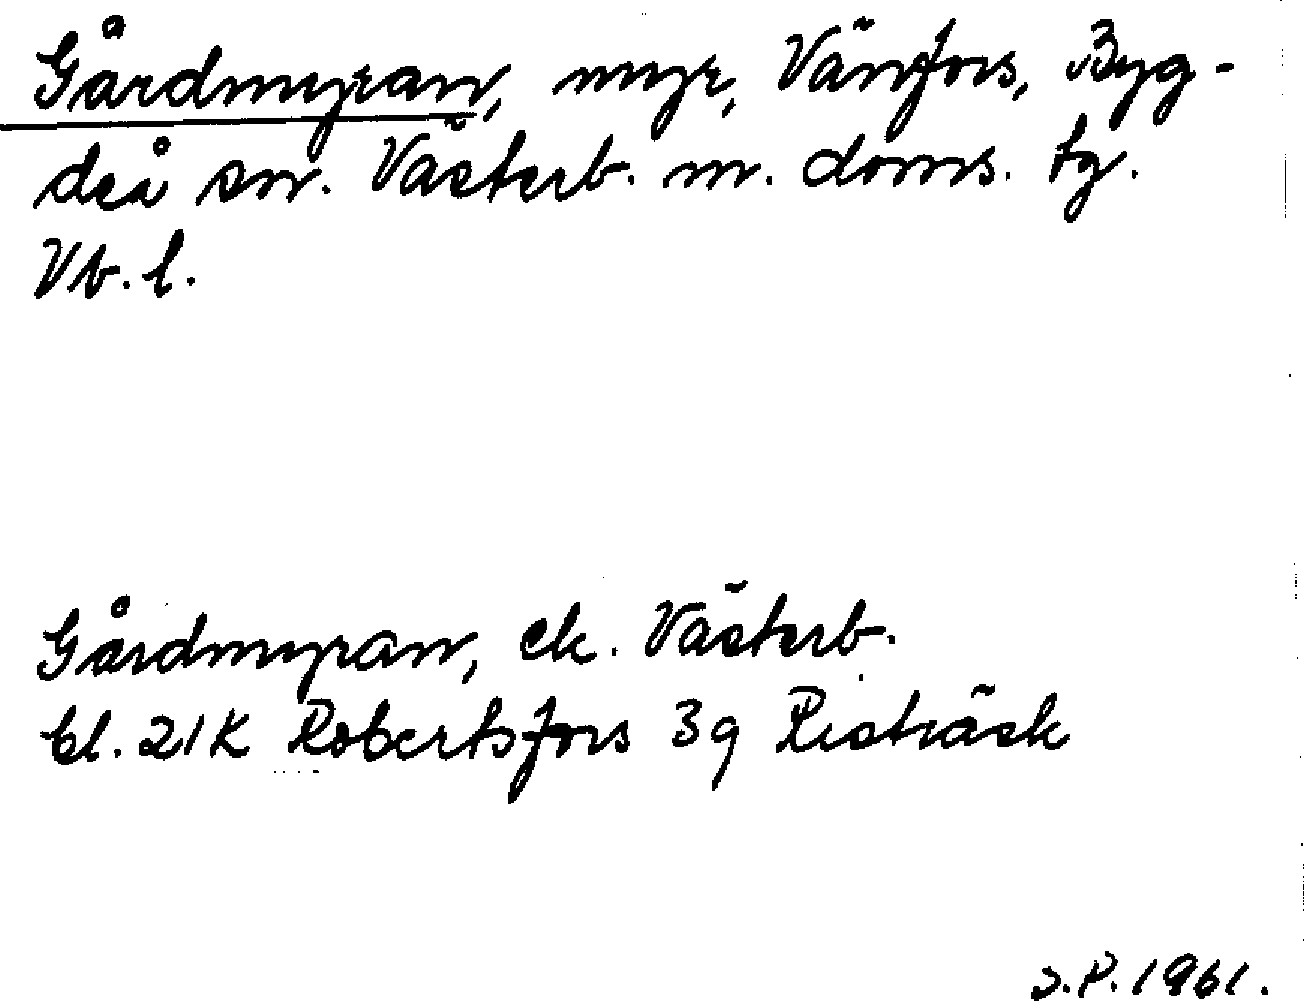 Gårdmyran, myr, Vänfors, Byg-
deå sn. Västerb. m. doms. tg.
Vb. l.
Gårdmyran, ek. Västerb.
bl. 21K Robertsfors 3g Risträsk
S.P. 1961.